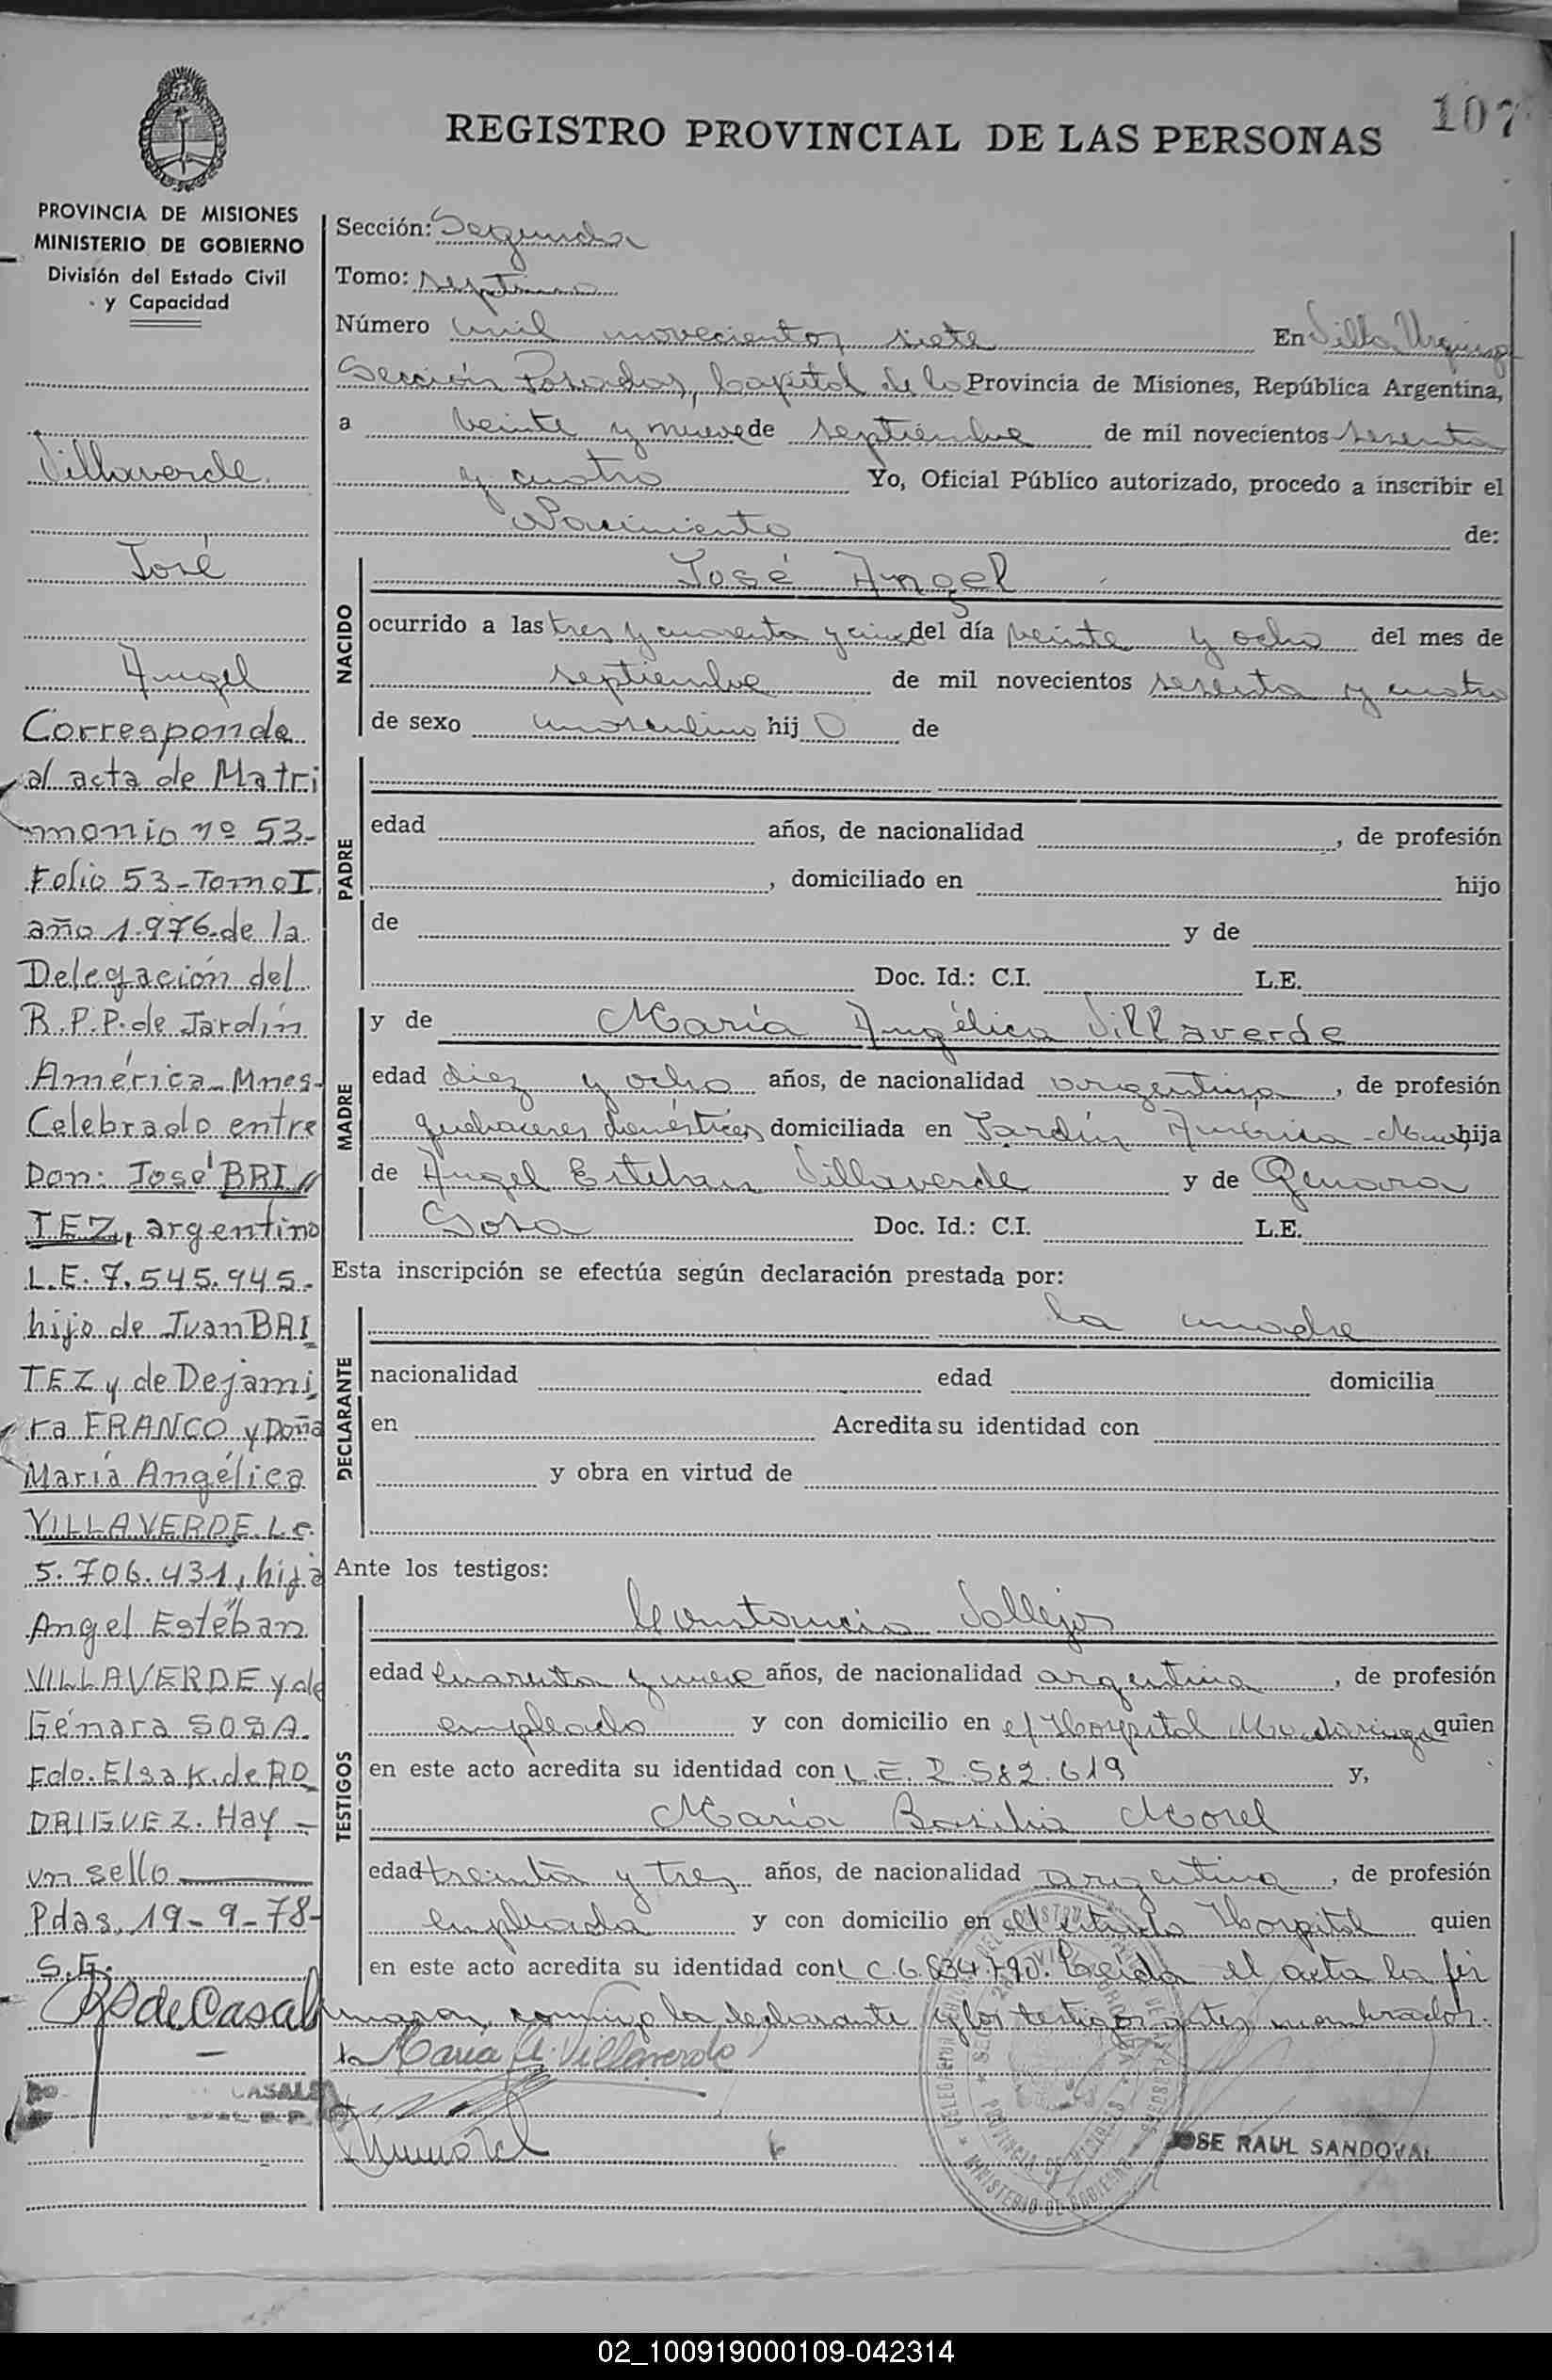 107
REGISTRO PROVINCIAL DE LAS PERSONAS
PROVINCIA DE MISIONES
MINISTERIO DE GOBIERNO
División del Estado Civil
y Capacidad
Villaverde
José
Angel
Corresponde
al acta de Matri
monio nº 53-
Folio 53-Tomo I
año 1.976 de la
Delegación del
R.P.P. de Jardín
América-Mnes-
Celebrado entre
Don: José BRI
TEZ, argentino
L.E. 7.545.945-
hijo de Juan BRI
TEZ y de Dejami
ra FRANCO y Doña
María Angélica
VILLAVERDE L.C.
5.706.431, hija
Angel Estéban
VILLAVERDE y de
Génara SOSA.
Fdo. Elsa K. de RO
DRIGUEZ. Hay -
un sello
Pdas. 19-9-78-
S.F.
de Casal
CASALS
Sección: Segunda
Tomo: septimo
Número mil novecientos siete En Villa Urquiza
Sección Posadas, Capital de la Provincia de Misiones, República Argentina,
a veinte y nueve de septiembre de mil novecientos sesenta
y cuatro Yo, Oficial Público autorizado, procedo a inscribir el
Nacimiento de:
NACIDO
José Angel
ocurrido a las tres y cuarenta y cinco del día veinte y ocho del mes de
septiembre de mil novecientos sesenta y cuatro
de sexo masculino hij o de
PADRE
edad años, de nacionalidad , de profesión
, domiciliado en hijo
de y de
Doc. Id.: C.I. L.E.
MADRE
y de María Angélica Villaverde
edad diez y ocho años, de nacionalidad argentina, de profesión
quehaceres domésticos domiciliada en Jardín América - hija
de Angel Esteban Villaverde y de Genara
Sosa Doc. Id.: C.I. L.E.
Esta inscripción se efectúa según declaración prestada por:
DECLARANTE
la madre
nacionalidad edad domicilia
en Acredita su identidad con
y obra en virtud de
Ante los testigos:
TESTIGOS
Constancio Vallejos
edad cuarenta y nueve años, de nacionalidad argentina, de profesión
empleado y con domicilio en el Hospital Madariaga quien
en este acto acredita su identidad con L.E. 2.582.619 y,
María Basilia Morel
edad treinta y tres años, de nacionalidad argentina, de profesión
empleada y con domicilio en el citado Hospital quien
en este acto acredita su identidad con L.C. 6.834.790. Leida el acta la fir
maron conmigo la declarante y los testigos antes nombrados.
María A. Villaverde
JOSE RAUL SANDOVAL
PROVINCIA DE MISIONES
MINISTERIO DE GOBIERNO
02_100919000109-042314